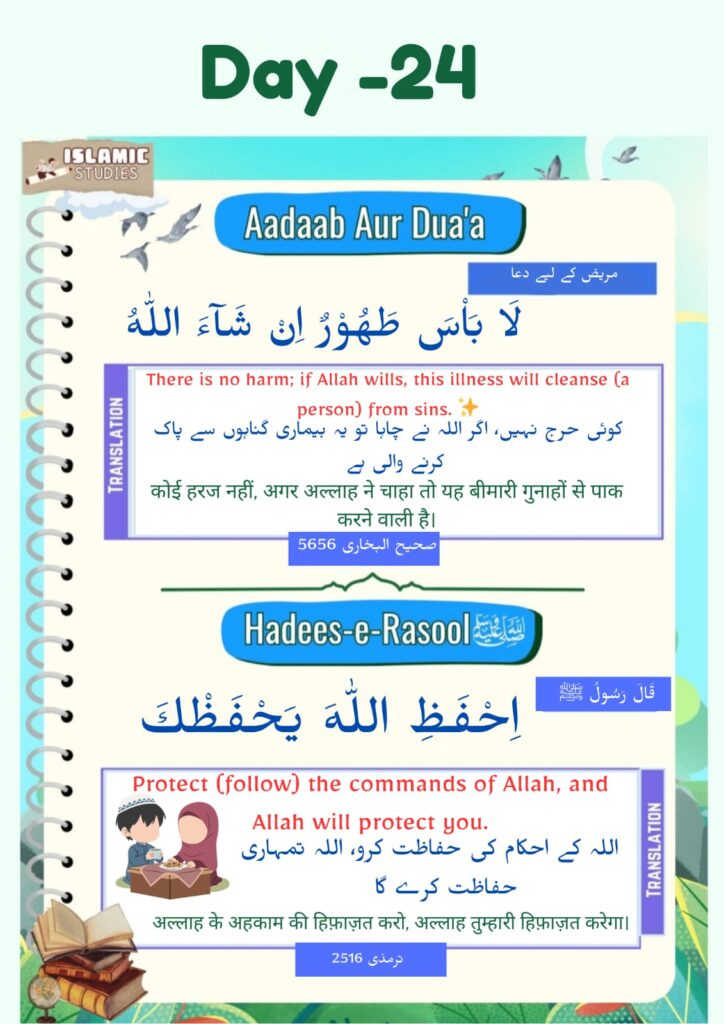 Day -24
ISLAMIC
STUDIES
Aadaab Aur Dua'a
مریض کے لیے دعا
لَا بَاْسَ طَهُوْرٌ اِنْ شَآءَ اللّٰهُ
TRANSLATION
There is no harm; if Allah wills, this illness will cleanse (a
person) from sins. ✨
کوئی حرج نہیں، اگر اللہ نے چاہا تو یہ بیماری گناہوں سے پاک
کرنے والی ہے
कोई हरज नहीं, अगर अल्लाह ने चाहा तो यह बीमारी गुनाहों से पाक
करने वाली है।
صحیح البخاری 5656
Hadees-e-Rasool ﷺ
قَالَ رَسُولُ ﷺ
اِحْفَظِ اللّٰهَ يَحْفَظْكَ
TRANSLATION
Protect (follow) the commands of Allah, and
Allah will protect you.
اللہ کے احکام کی حفاظت کرو، اللہ تمہاری
حفاظت کرے گا
अल्लाह के अहकाम की हिफ़ाज़त करो, अल्लाह तुम्हारी हिफ़ाज़त करेगा।
ترمذی 2516